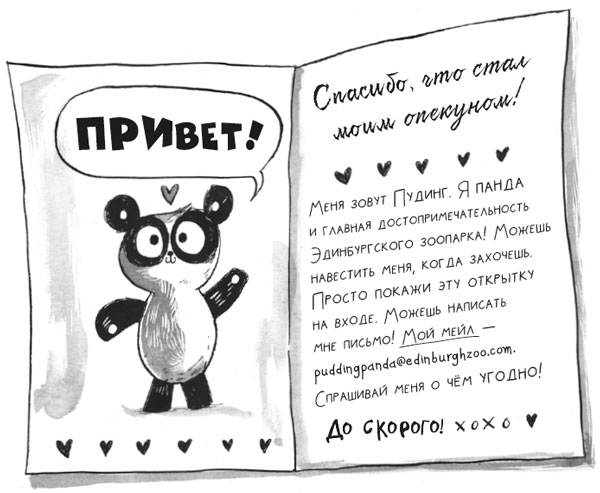 ПРИВЕТ!
Спасибо, что стал
моим опекуном!
Меня зовут Пудинг. Я панда
и главная достопримечательность
Эдинбургского зоопарка! Можешь
навестить меня, когда захочешь.
Просто покажи эту открытку
на входе. Можешь написать
мне письмо! Мой мейл —
puddingpanda@edinburghzoo.com.
Спрашивай меня о чём угодно!
До скорого! xoxo